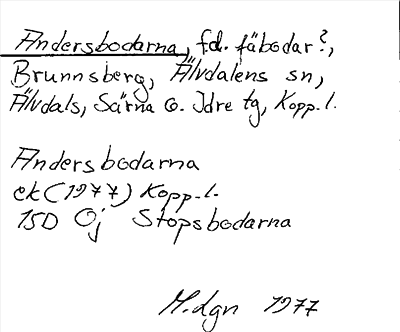 Andersbodarna, f.d. fäbodar?,
Brunnsberg, Älvdalens sn,
Älvdals, Särna o. Idre tg, Kopp. l.
Andersbodarna
ek (1977) Kopp. l.
15D Öj Stopsbodarna
M.dgn 1977